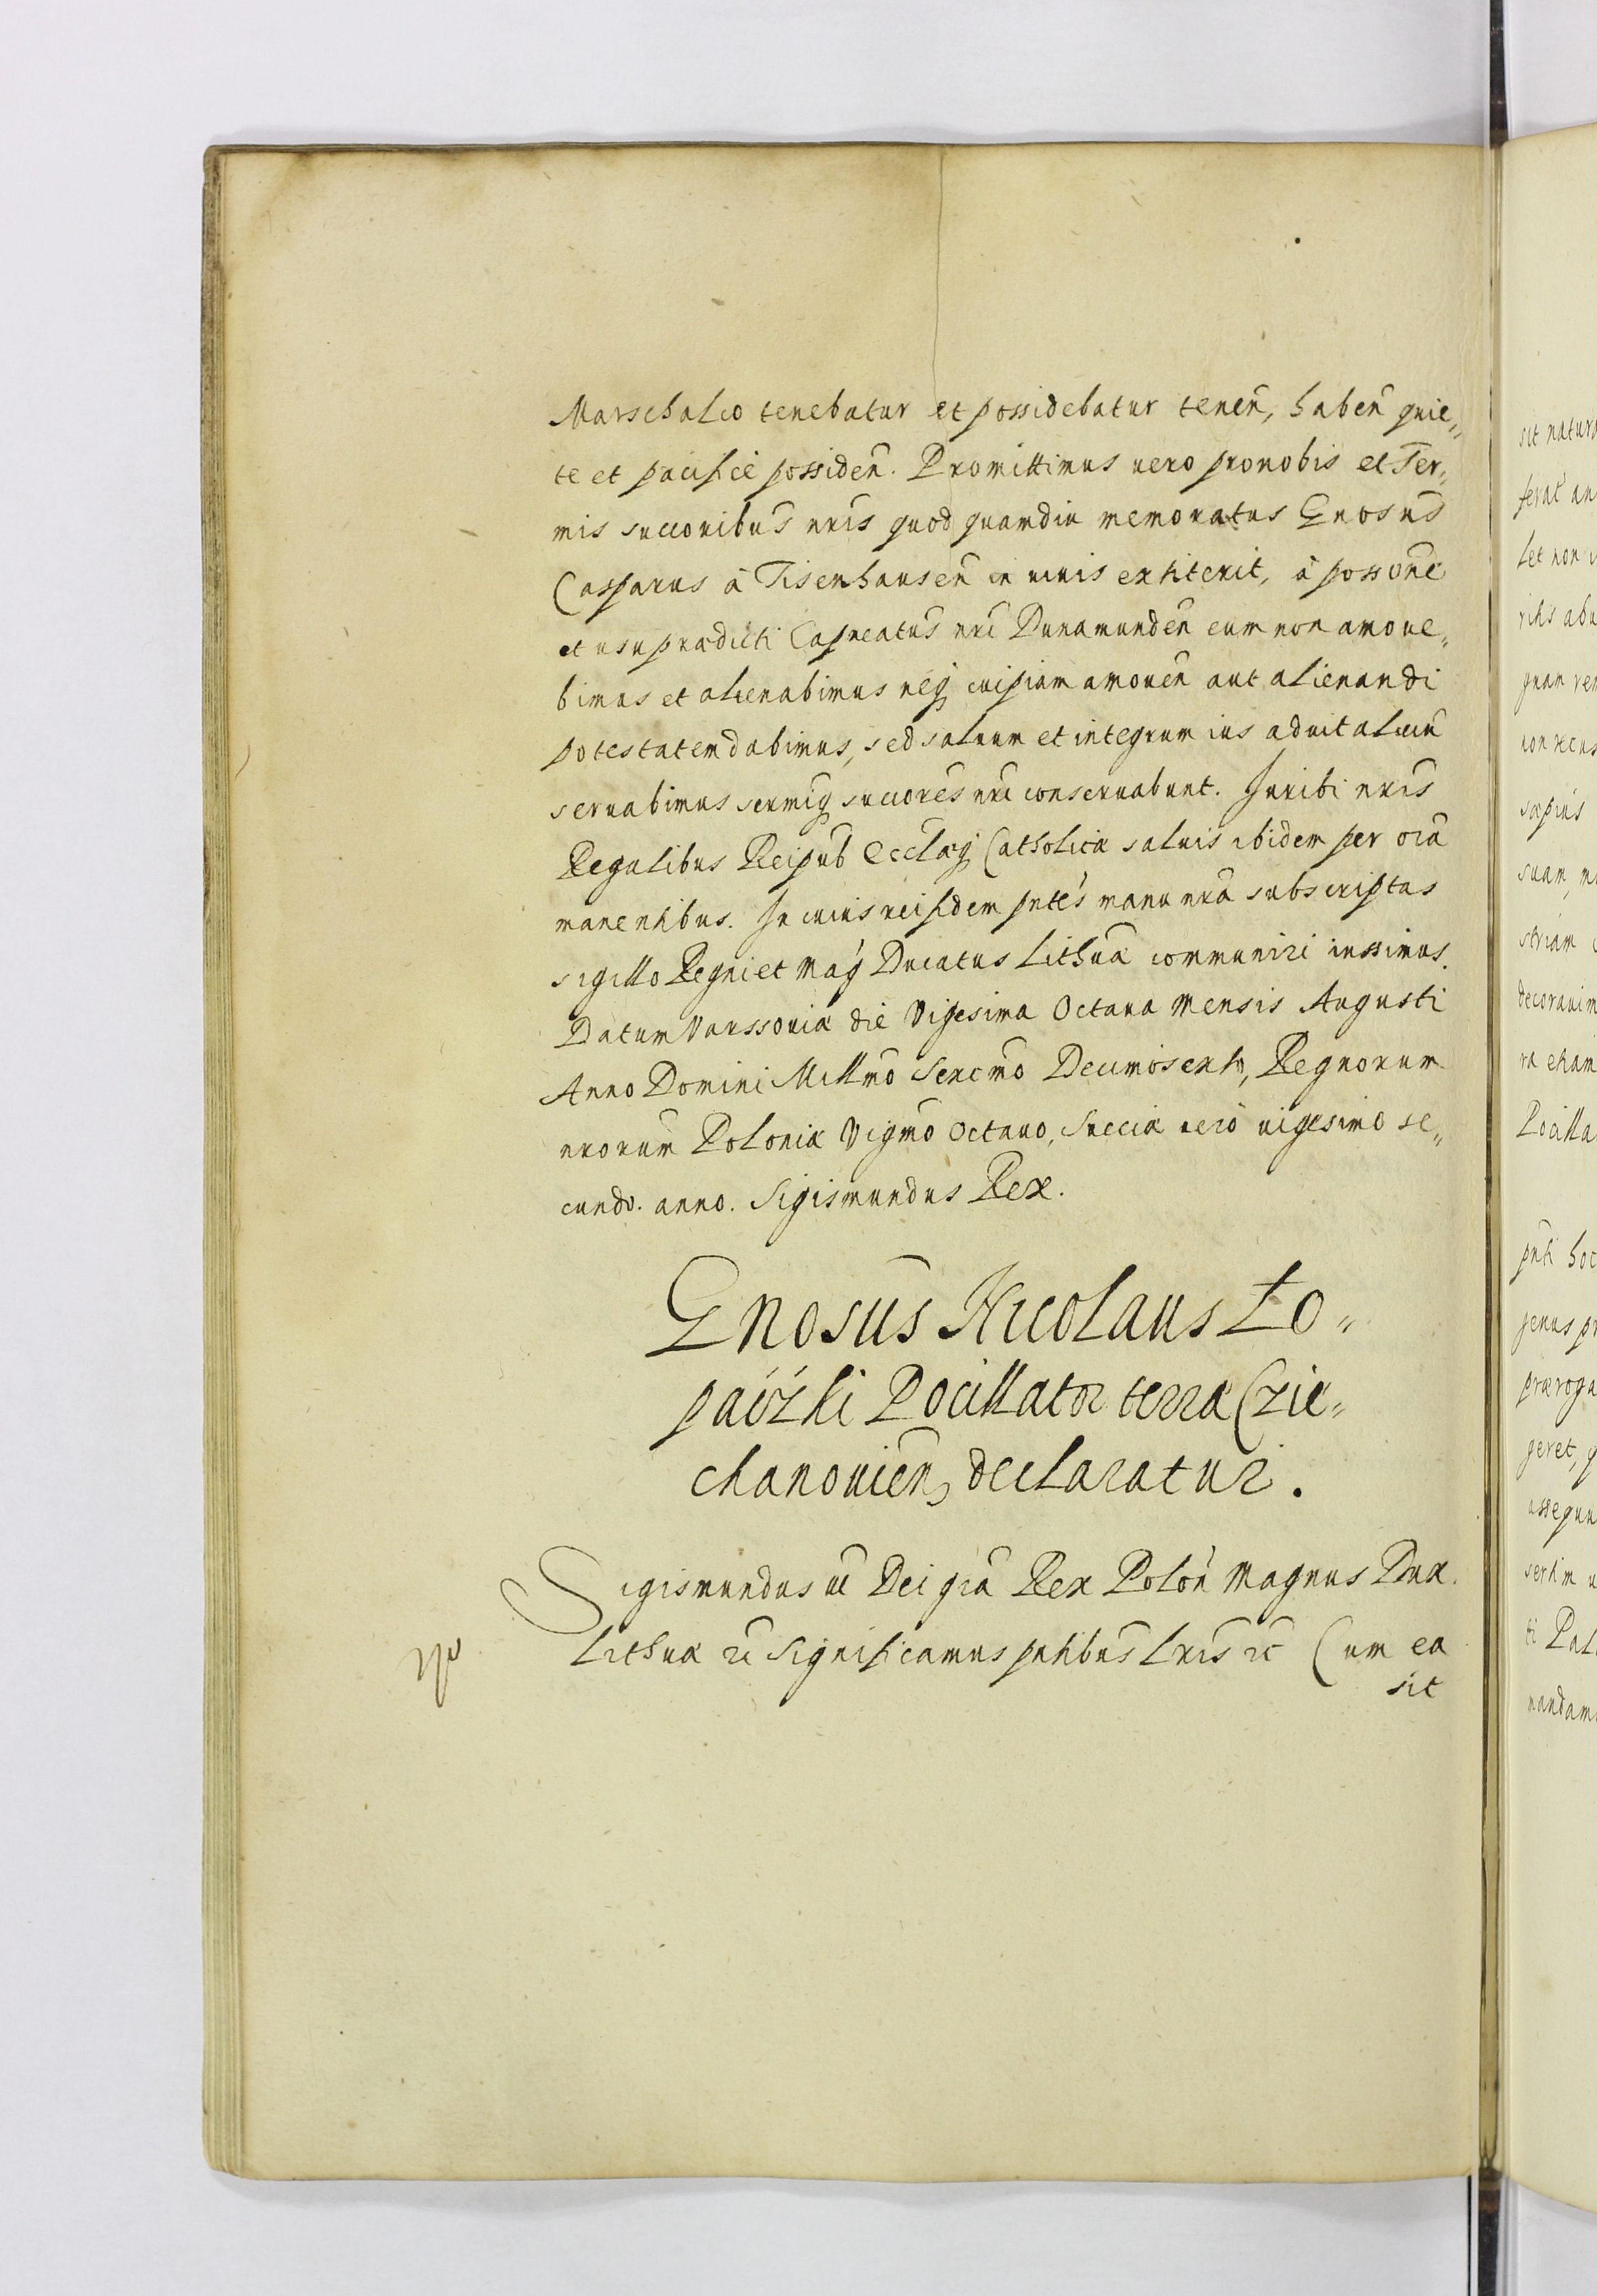 Marschalco tenebatur et possidebatur tenen̄, haben̄ quie„
te et pacificè possiden̄. Promittimus uero pro nobis et Ser„
mis succoribus nris quod quamdiu memoratus Gnosus
Casparus à Tisenhausen in uiuis extiterit, à possone
et usu prædicti Capneatus nri Dunamunden eum non amoue„
bimus et alienabimus neq cuipiam amouen aut alienandi
potestatem dabimus, sed saluum et integrum ius aduitalium
seruabimus sermiq succores nri conseruabunt. Juribi nris
Regalibus Reipub Ecclæq Catholicæ saluis ibidem per oia
manentibus. In cuius rei fidem pntes manu nra subscriptas
sigillo Regni et Mag Ducatus Lithuæ communiri iussimus.
Datum Varssouiæ die Vigesima Octaua Mensis Augusti
Anno Domini Millmo Sexcmo Decimosexto, Regnorum
nrorum Poloniæ Vigmo Octauo, Sueciæ uero uigesimo se„
cundo. anno. Sigismundus Rex.
Gnosus Nicolaus Ło„
pacźki Pocillator terræ Czie„
chanouien, declaratur.
Sigismundus III Dei gra Rex Polon Magnus Dux
Lithuæ &c Significamus pntibus Lris &c Cum ea
sit
sit natura
ferat an
let non
quam rem
sæpius
suam
striam
decorauim
ra etiam
Pocilla
pnti hoc
genus pr
præroga
geret, q
assequu
ti Pal
mandam